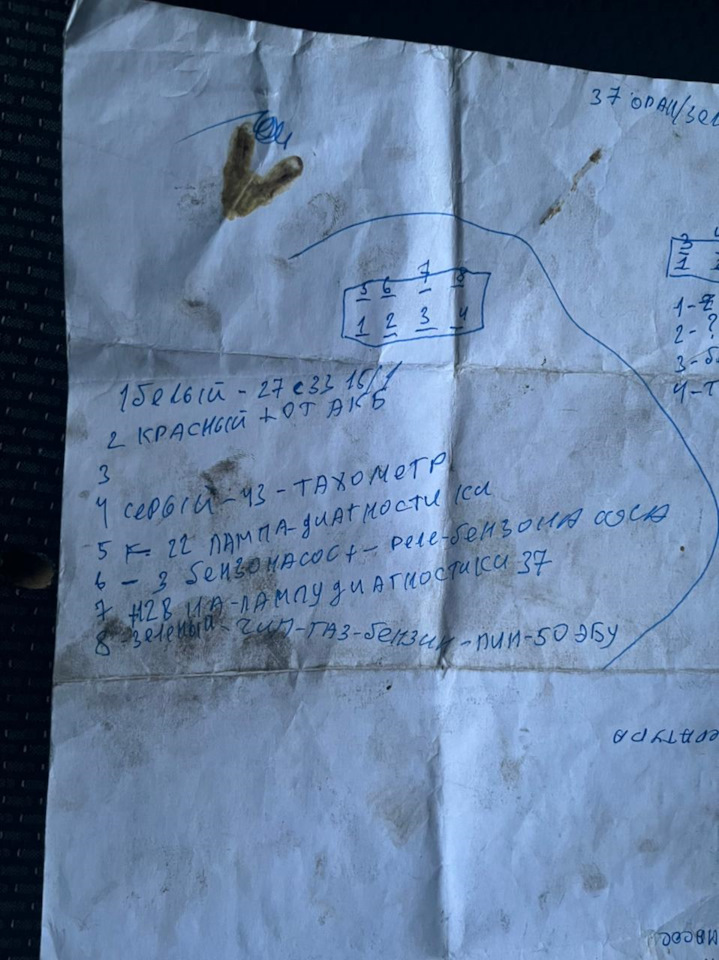 37 ОРАН/ЗЕЛ
5 6 7 8
1 2 3 4
3
1
1-
2-?
3-Б
4-Т
1 БЕЛЫЙ - 27 с 33
2 КРАСНЫЙ + ОТ АКБ
3
4 СЕРЫЙ - 43 - ТАХОМЕТР
5 22 ЛАМПА-ДИАГНОСТИКИ
6 - 3 БЕНЗОНАСОС + - РЕЛЕ-БЕНЗОНАСОСА
7 +12В НА-ЛАМПУ ДИАГНОСТИКИ 37
8 ЗЕЛЕНЫЙ - ЧИП-ГАЗ-БЕНЗИН-ПИН-50 ЭБУ